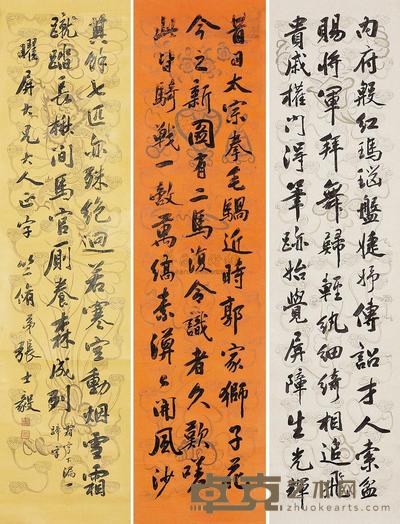 內府殷紅瑪瑙盤婕妤傳詔才人索盆
賜將軍拜舞歸輕紈細綺相追飛
貴戚權門得筆跡始覺屏障生光輝
昔日太宗拳毛騧近時郭家獅子花
今之新圖有二馬復令識者久歎嗟
此皆騎戰一敵萬縞素漠〻開風沙
其餘七匹亦殊絕迥若寒空動烟雪霜
蹴踏長楸間馬官厮養森成列
霜字下漏一
蹄字
曜屏大兄大人正字 脩弟張士毅
卓克艺术网
www.zhuokearts.com